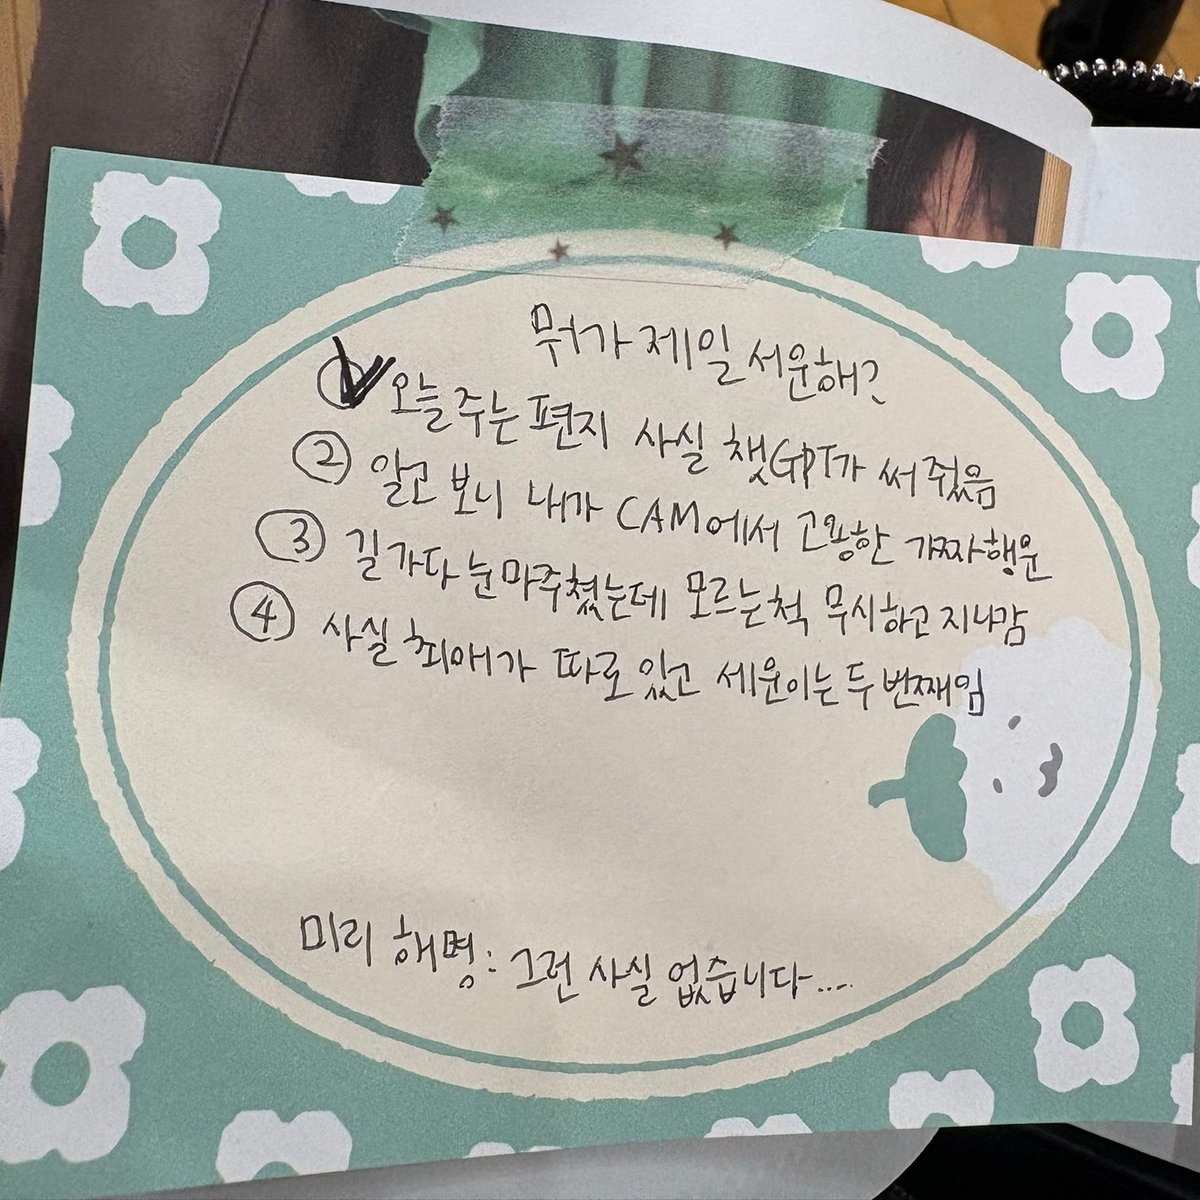 뭐가 제일 서운해?
① 오늘 주는 편지 사실 챗GPT가 써줬음
② 알고 보니 내가 CAM에서 고용한 가짜행운
③ 길 가다 눈 마주쳤는데 모르는 척 무시하고 지나감
④ 사실 최애가 따로 있고 세운이는 두 번째임
미리 해명: 그런 사실 없습니다....